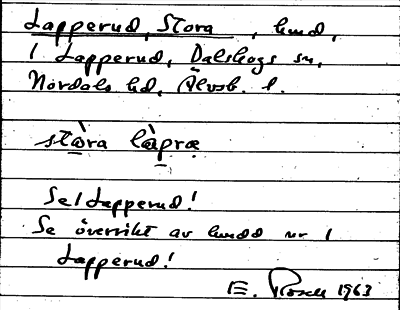 Lapperud, Stora, hmd,
i Lapperud, Dalskogs sn,
Nordals hd, Älvsb. l.
stò̲ra là̲præ̣
Se 1 Lapperud!
Se översikt av hmdd nr 1
Lapperud!
E. Rosell 1963